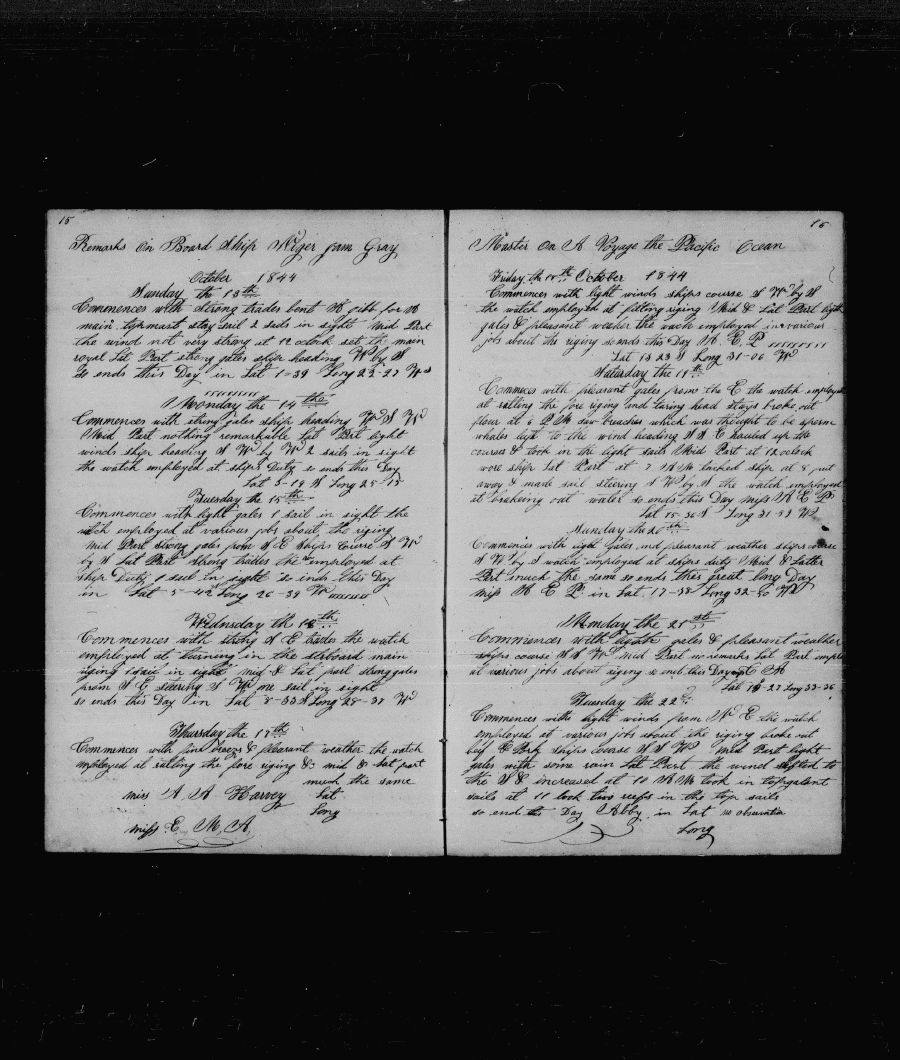 15
Remarks on Board Ship Niger Jam Gray
October 1844
Sunday the 13th
Commences with strong trades bent
main topmast stay sail 2 sails in sight Mid Part
the wind not very strong at 12 oclock set the main
royal Lat Part strong gales ship heading W by S
so ends this Day in Lat 1-39 Long 22-27 W
Monday the 14the
Commences with strong gales ship heading W S W
Mid Part nothing remarkable Lat Part light
winds ship heading S W by W 2 sails in sight
the watch employed at ships Duty so ends this Day
Lat 3-19 S Long 25-15
Tuesday the 15th
Commences with light gales 1 sail in sight the
watch employed at various jobs about the riging
Mid Part strong gales from S E Ships Course S W
by S Lat Part Strong trades the employed at
ship Duty 1 sail in sight so ends this Day
in Lat 5-42 Long 26-39 W
Wednsday th 16th
Commences with strong S E trades the watch
employed at turning in the starboard main
riging 1 sail in sight mid & Lat part strong gales
from S E steering S W one sail in sight
so ends this Day in Lat 8-33 S Long 28-31 W
Thursday the 17th
Commences with fine breezes & pleasant weather the watch
employed at ratling the fore riging & mid & Lat part
much the same
miss A A Harvey Lat
Long
miss E M A
15
Master on A Voyage the Pacific Ocean
Friday th 18th October 1844
Commences with light winds ships course S W by S
the watch employed at fitting riging Mid & Lat Part light
gales & pleasant weather the wach employed in various
jobs about the riging so ends this Day H E P
Lat 13 23 S Long 31-06 W
Saturday the 19th
Commeces with pleasant gales from the E the watch employed
at ratling the fore riging and taring head stays broke out
flour at 6 P M saw breaches which was thought to be sperm
whales luft to the wind heading S S E hauled up the
courses & took in the light sails Mid Part at 12 oclock
wore ship Lat Part at 7 A M tacked ship at 8 put
away & made sail steering S W by S the watch employed
at brakeing out water so ends this Day Miss H E P
Lat 15-36 S Long 31-39 W
Sunday the 20th
Commences with light Gales and pleasant weather ships course
S W by S watch employed at ships duty Mid & Latter
Part much the same so ends this great long Day
Miss H E P in Lat 17-38 Long 32-50 W
Monday the 21st
Commences with light gales & pleasant weather
ships course S S W Mid Part no remarks Lat Part employed
at various jobs about riging so ends this Day
Lat 19-27 Long 33-36
Tuesday the 22
Commences with light winds from N E the watch
employed at various job about the riging broke out
ships Course S S W mid Part light
gales with some rain Lat Part the wind shifted to
the S & increased at 10 A M took in topgalant
sails at 11 took two reefs in the top sails
so end this Day Abby in Lat no observation
Long